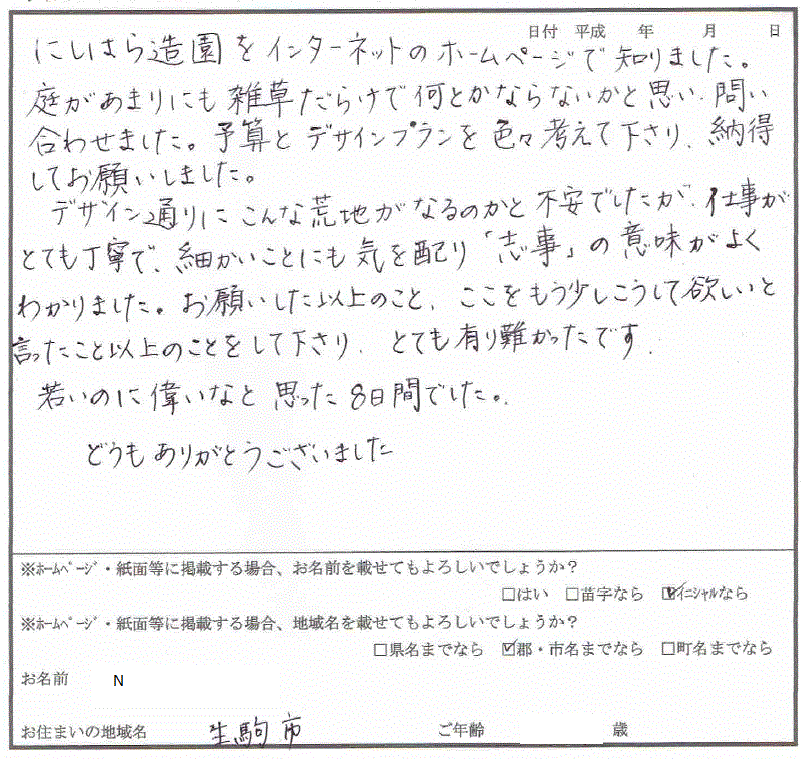 日付 平成 年 月 日
にしはら造園をインターネットのホームページで知りました。
庭があまりにも雑草だらけで何とかならないかと思い、問い
合わせました。予算とデザインプランを色々考えて下さり、納得
してお願いしました。
デザイン通りにこんな荒地がなるのかと不安でしたが、仕事が
とても丁寧で、細かいことにも気を配り「志事」の意味がよく
わかりました。お願いした以上のこと、ここをもう少しこうして欲しいと
言ったこと以上のことをして下さり、とても有り難かったです.
若いのに偉いなと思った8日間でした。
どうもありがとうございました
※ホームページ・紙面等に掲載する場合、お名前を載せてもよろしいでしょうか?
□はい □苗字なら ☑イニシャルなら
※ホームページ・紙面等に掲載する場合、地域名を載せてもよろしいでしょうか?
□県名までなら ☑郡・市名までなら □町名までなら
お名前 N
お住まいの地域名 生駒市 ご年齢 歳